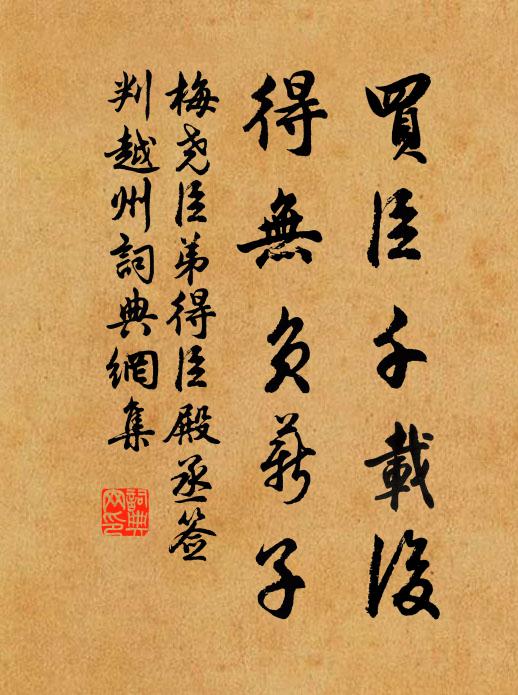 買臣千載後
得無負薪子
梅堯臣弟得臣殿丞签
判越州詞典網集
詞典網印